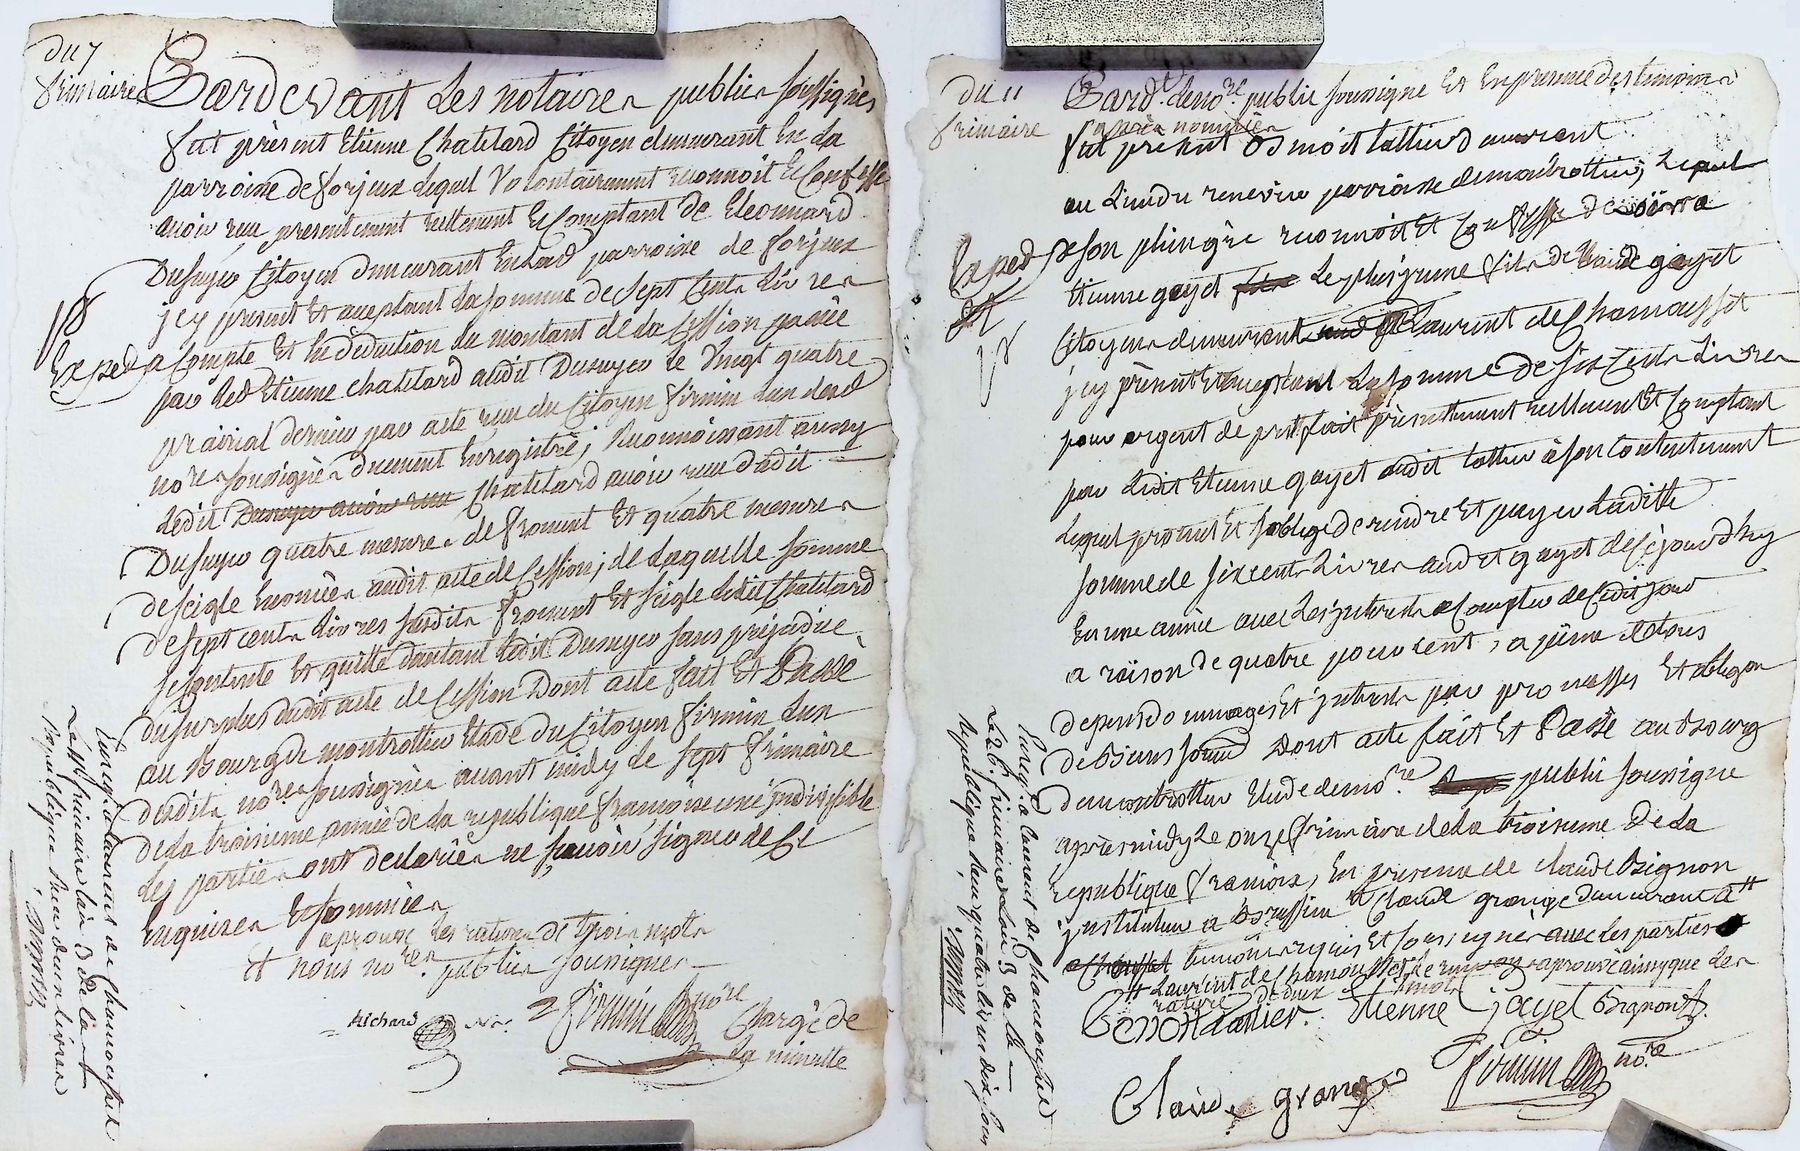 du 7
frimaire
Pardevant Les notaires publics soussignés
fut présent Etienne Chatelard Citoyen demeurant en la
parroisse de forjeux Lequel Volontairement reconnoit et Confesse
avoir reçu presentement reellement et Comptant de Eleonnard
Dusuyer Citoyen demeurant en Lad parroisse de forjeux
jcy present Et aceptant La somme de sept Cents Livres
Exped a Compte Et En déduction du montant de La Cession passée
par led Etienne Chatelard audit Dusuyer le Vingt quatre
prairial dernier par acte reçu du Citoyen firmin L'un desd
nores soussignés duement Enregistré; Reconnoissant aussy
Ledit Dusuyer avoir reçu Chatelard avoir reçu dudit
Dusuyer quatre mesures de froment Et quatre mesures
de seigle Enoncés audit acte de Cession; de Laquelle somme
de sept cents Livres susdits froment Et seigle Ledit Chatelard
se contente Et quitte d'autant Ledit Dusuyer sans préjudice
du surplus dudit acte de Cession Dont acte fait Et Passé
au Bourg de montrottier Etude du Citoyen firmin L'un
desdits nores soussignés avant midy le sept frimaire
de La troisieme année de La republique françoise une jndivisible
Les parties ont déclarées ne sçavoir signer de Ce
requises Et sommées
aprouvé les ratures de trois mots
Et nous nores publics soussignes
Richard nore 2 firmin nore Chargé de
La minutte
Enregistré a Laurent de Chamousset
Le frimaire L'an 3 de la
Republique Reçu deux livres
du 11
frimaire
Pardt Le nore public soussigné Et En presence des temoins
après nommés
fut present Benoit Lattier demeurant
au Lieu du renevier parroisse de montrottier; Lequel
Exped de son plein gré reconnoit Et Confesse devoir a
Etienne gayet Le plus jeune fils de Claude gayet
Citoyens demeurant Laurent de Chamousset
jcy présent Et aceptant La somme de six Cents Livres
pour argent de pret fait presentement reellement Et Comptant
par Ledit Etienne gayet audit Lattier a son Contentement
Lequel promet Et s'oblige de rendre Et payer Laditte
somme de six cents Livres audit gayet de Cejourdhuy
En une année avec Les jnterets a Compter de Cedit jour
a raison de quatre pour Cent, a peine de tous
depends dommages Et jnterets par promesses Et obligon
de Biens soumis Dont acte fait Et Passé au Bourg
de montrottier Etude de nore public soussigné
après midy Le onze frimaire de La troisieme De La
republique françoise, En presence de Claude Bignon
jnstituteur a Brussieu Et Claude grange demeurant a #
temoins requis Et soussignés avec Les parties
# Laurent de Chamousset aprouvé ainsy que Les
rature de deux mots
Benoit Lattier. Etienne gayet Bignon
Claude grange firmin nore
Enregé a Laurent de Chamousset
Le 26 frimaire L'an 3 de La
Republique Reçu quatre livres dix sous